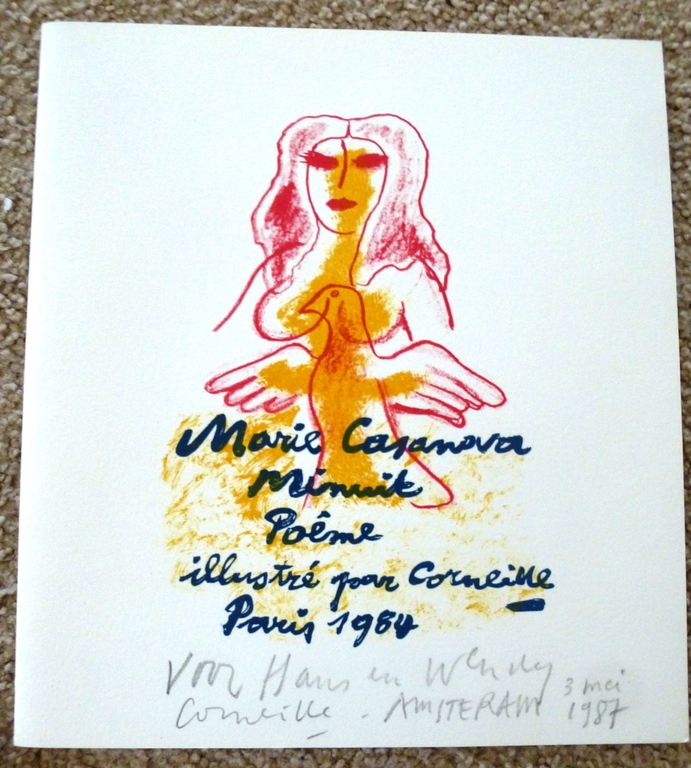 Marie Casanova
Minuit
Poême
illustré par Corneille
Paris 1984
Voor Hans en Wendy
Corneille - AMSTERAM 3 mei
1987